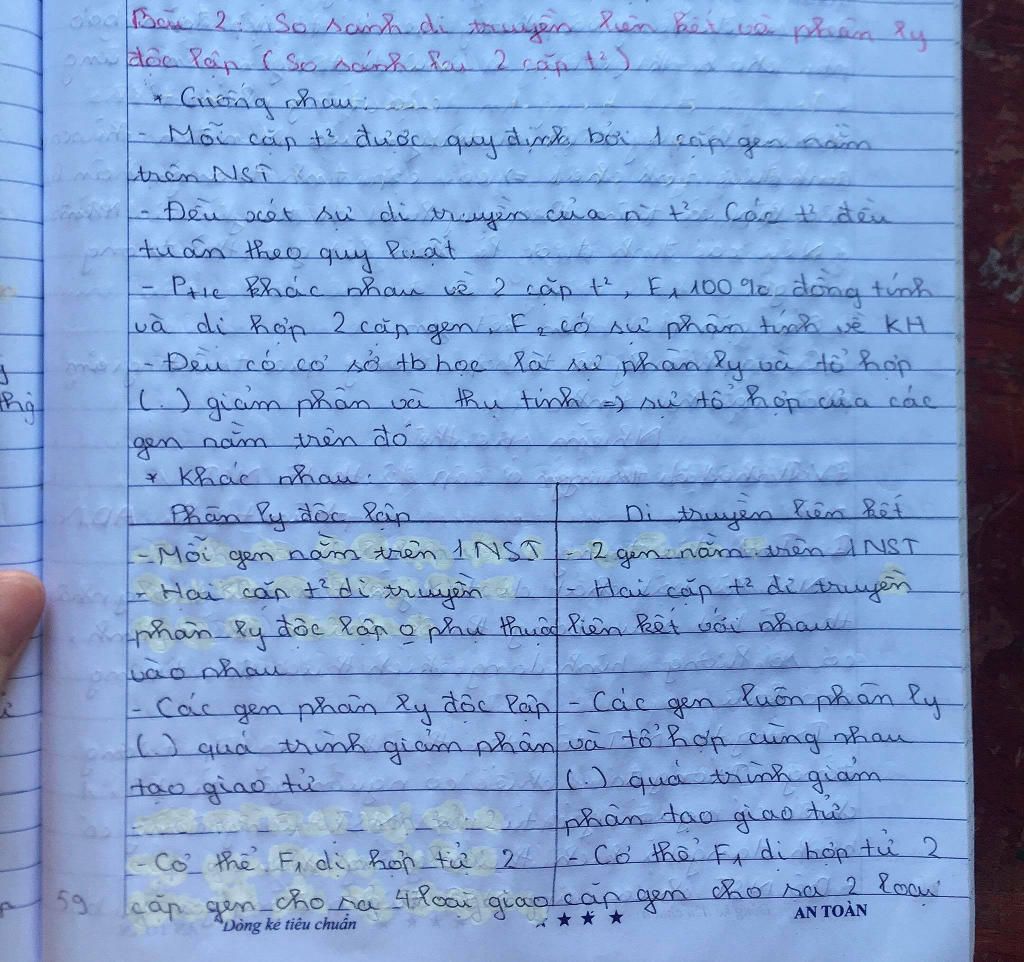 Bài 2: So sánh di truyền liên kết và phân ly
độc lập (So sánh lai 2 cặp t²)
* Giống nhau:
- Mỗi cặp t² được quy định bởi 1 cặp gen nằm
trên NST
- Đều xét sự di truyền của n t². Các t² đều
tuân theo quy luật
- Pt/c khác nhau về 2 cặp t², F1 100% đồng tính
và dị hợp 2 cặp gen, F2 có sự phân tính về KH
- Đều có cơ sở tb học là sự phân ly và tổ hợp
(.) giảm phân và thụ tinh => sự tổ hợp của các
gen nằm trên đó
* Khác nhau:
Phân ly độc lập
- Mỗi gen nằm trên 1 NST
- Hai cặp t² di truyền
phân ly độc lập o phụ thuộc
vào nhau
- Các gen phân ly độc lập
(.) quá trình giảm phân
tạo giao tử
- Cơ thể F1 dị hợp tử 2
cặp gen cho ra 4 loại giao
Di truyền liên kết
- 2 gen nằm trên 1 NST
- Hai cặp t² di truyền
liên kết với nhau
- Các gen luôn phân ly
và tổ hợp cùng nhau
(.) quá trình giảm
phân tạo giao tử
- Cơ thể F1 dị hợp tử 2
cặp gen cho ra 2 loại
59
Dòng kẻ tiêu chuẩn
★ ★ ★
AN TOÀN